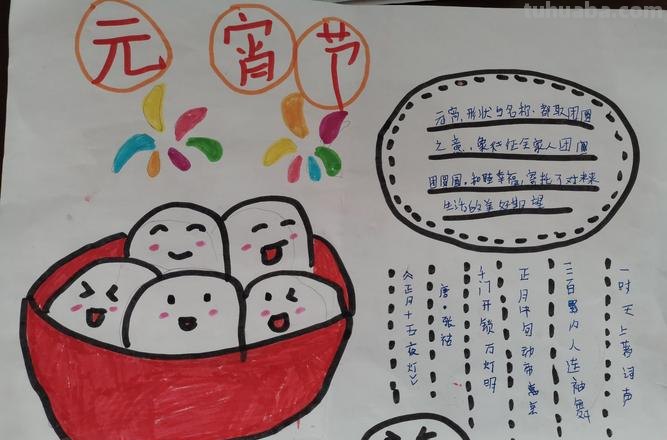 元宵节
元宵,形状与名称,都取团圆
之意,象征任全家人团圆
团圆圆,和睦幸福,寄托了对未来
生活的美好期望
《正月十五夜灯》
唐·张祜
千门开锁万灯明
正月中旬动帝京
三百男内人连袖舞
一时天上著词声
tuhuaba.com